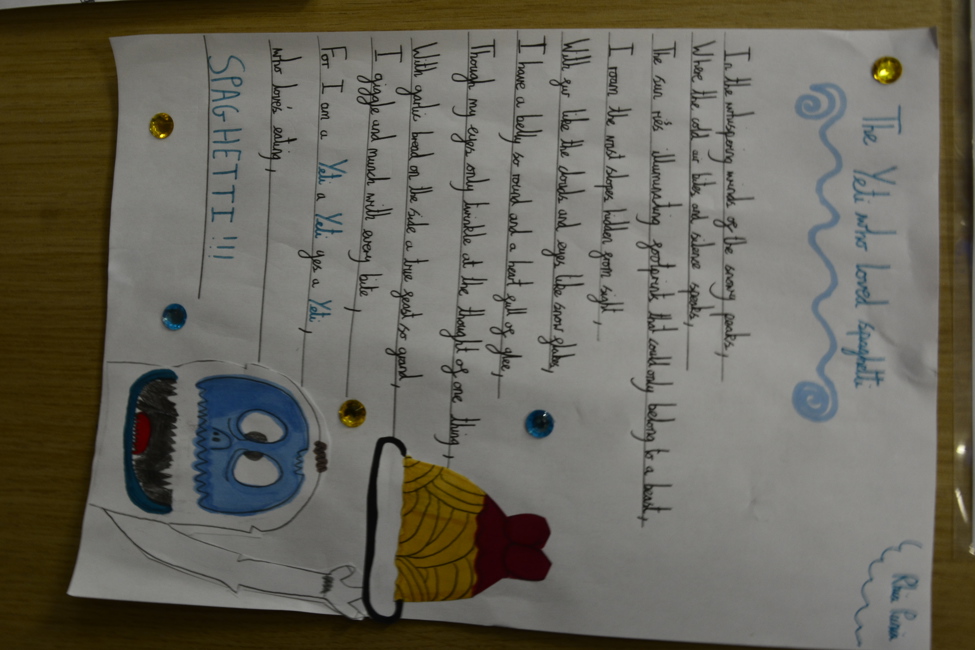 The Yeti who loved spaghetti
In the whispering winds of the snowy peaks,
Where the cold air bites and silence speaks,
The sun rises illuminating footprints that could only belong to a beast,
I roam the most slopes hidden from sight,
With fur like the clouds and eyes like snow flakes,
I have a belly so round and a heart full of glee,
Though my eyes only twinkle at the thought of one thing,
With garlic bread on the side a true feast so grand,
I giggle and munch with every bite,
For I am a Yeti a Yeti yes a Yeti,
who loves eating,
SPAGHETTI!!!